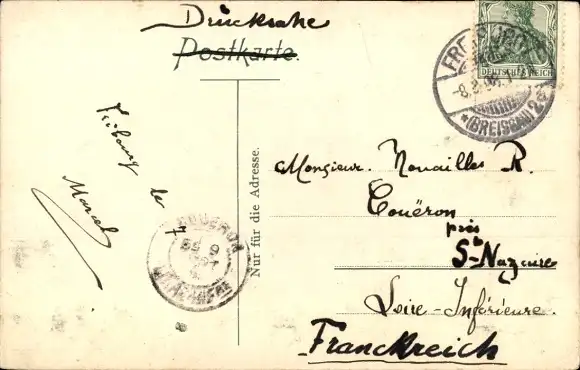 Drucksache
Postkarte.
FREIBURG
DEUTSCHES REICH
* (BREISGAU) 2a
Fribourg le 7
Marcel
COUËRON
Nur für die Adresse.
Monsieur Nouailles R.
Couëron
près
St-Nazaire
Loire-Inférieure.
Franckreich